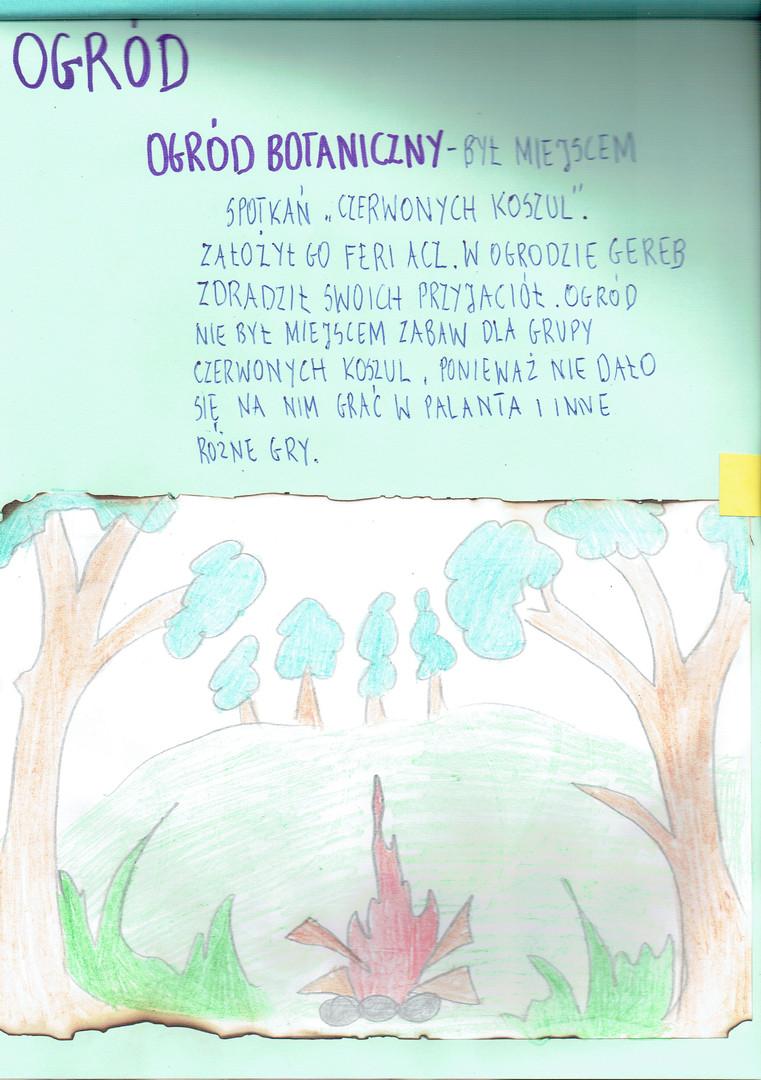 OGRÓD
OGRÓD BOTANICZNY - BYŁ MIEJSCEM
SPOTKAŃ „CZERWONYCH KOSZUL".
ZAŁOŻYŁ GO FERI ACZ. W OGRODZIE GEREB
ZDRADZIŁ SWOICH PRZYJACIÓŁ. OGRÓD
NIE BYŁ MIEJSCEM ZABAW DLA GRUPY
CZERWONYCH KOSZUL, PONIEWAŻ NIE DAŁO
SIĘ NA NIM GRAĆ W PALANTA I INNE
RÓŻNE GRY.